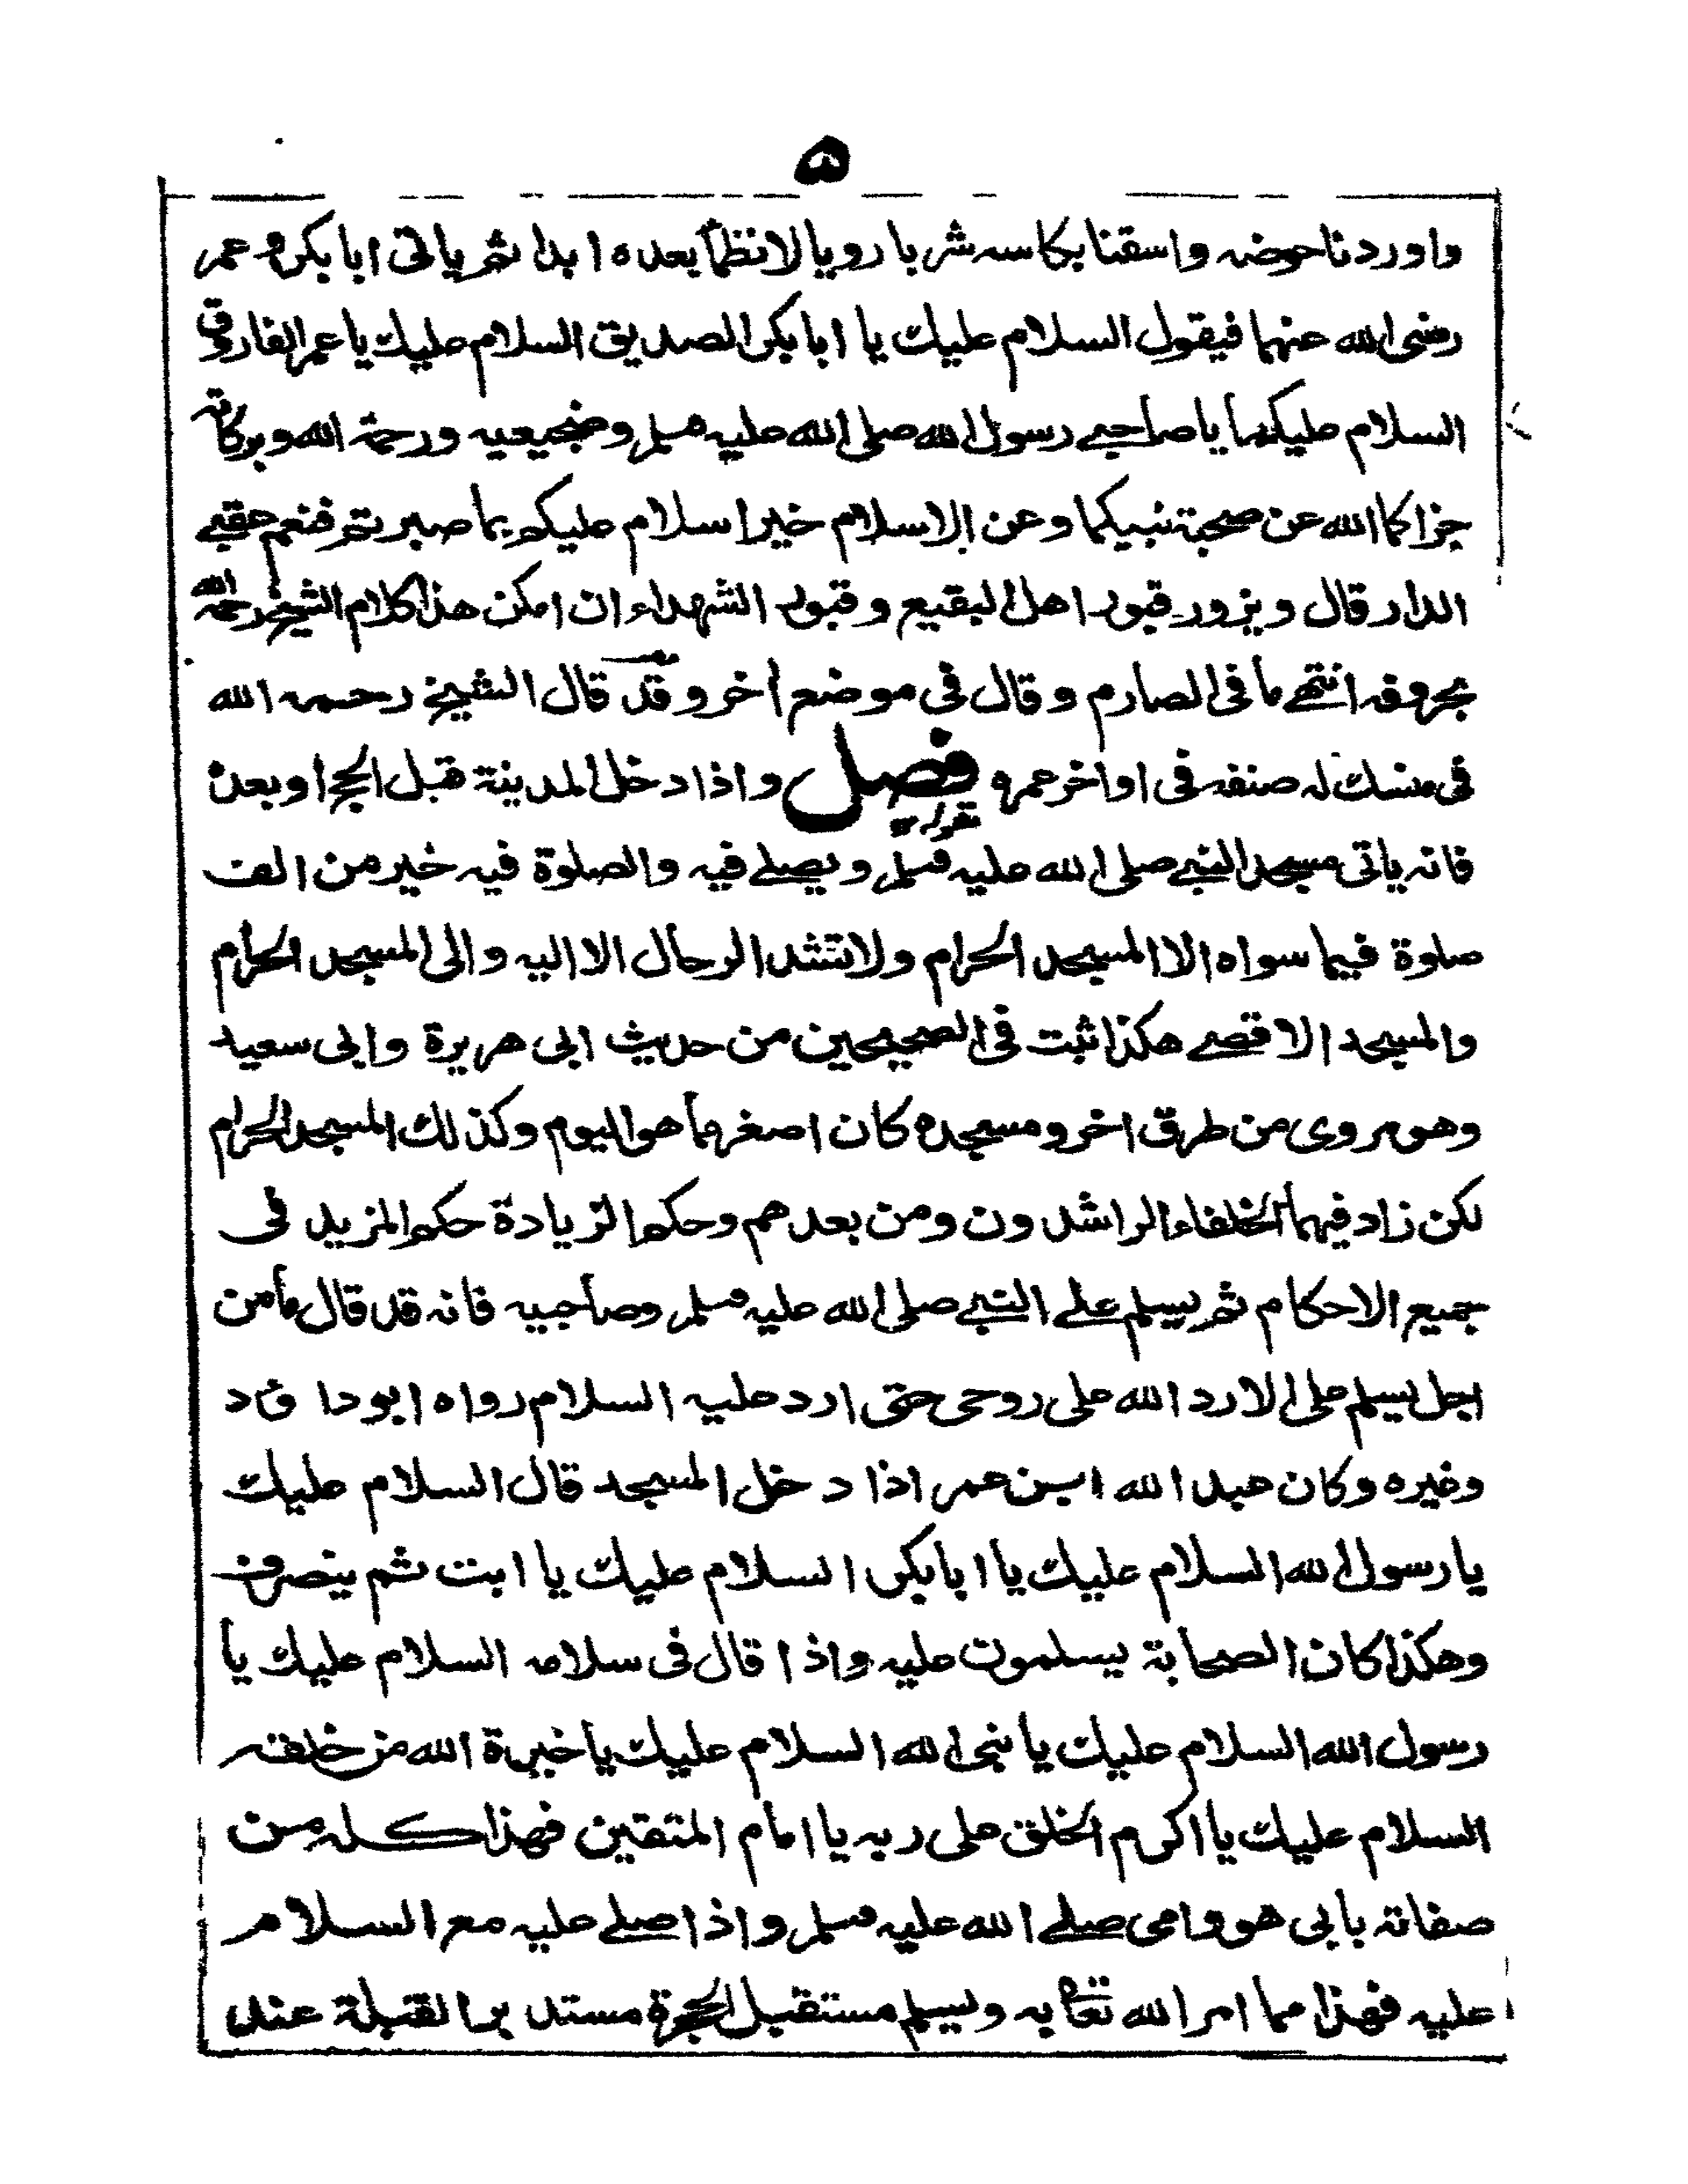 ۵
واوردنا حوضه واسقنا بكاسه شربا رويا لا نظمأ بعده ابدا ثم ياتى ابا بكر و عمر
رضى الله عنهما فيقول السلام عليك يا ابا بكر الصديق السلام عليك يا عمر الفاروق
السلام عليكما يا صاحبے رسول الله صلى الله عليه وسلم وضجيعيه ورحمة الله وبركاته
جزاكما الله عن صحبة نبيكما وعن الاسلام خيرا سلام عليكم بما صبرتم فنعم عقبے
الدار قال ويزور قبور اهل البقيع وقبور الشهداء ان امكن هذا كلام الشيخ رحمه الله
بحروفه انتهے ما فى الصارم وقال فى موضع اخر وقد قال الشيخ رحمه الله
فى منسك له صنفه فى اواخر عمره فصل واذا دخل المدينة قبل الحج او بعده
فانه ياتى مسجد النبے صلى الله عليه وسلم ويصلے فيه والصلوة فيه خير من الف
صلوة فيما سواه الا المسجد الحرام ولا تشد الرحال الا اليه والى المسجد الحرام
والمسجد الاقصے هكذا ثبت فى الصحيحين من حديث ابى هريرة وابى سعيد
وهو مروى من طرق اخر ومسجده كان اصغر مما هو اليوم وكذلك المسجد الحرام
لكن زاد فيهما الخلفاء الراشدون ومن بعدهم وحكم الزيادة حكم المزيد فى
جميع الاحكام ثم يسلم علے النبے صلى الله عليه وسلم وصاحبيه فانه قد قال ما من
اجل يسلم على الا رد الله على روحى حتى ارد عليه السلام رواه ابو داؤد
وغيره وكان عبد الله ابن عمر اذا دخل المسجد قال السلام عليك
يا رسول الله السلام عليك يا ابا بكر السلام عليك يا ابت ثم ينصرف
وهكذا كان الصحابة يسلمون عليه واذا قال فى سلامه السلام عليك يا
رسول الله السلام عليك يا نبى الله السلام عليك يا خيرة الله من خلقه
السلام عليك يا اكرم الخلق على ربه يا امام المتقين فهذا كله من
صفاته بابى هو وامى صلے الله عليه وسلم واذا صلے عليه مع السلام
عليه فهذا مما امر الله تعا به ويسلم مستقبل الحجرة مستدبر القبلة عند